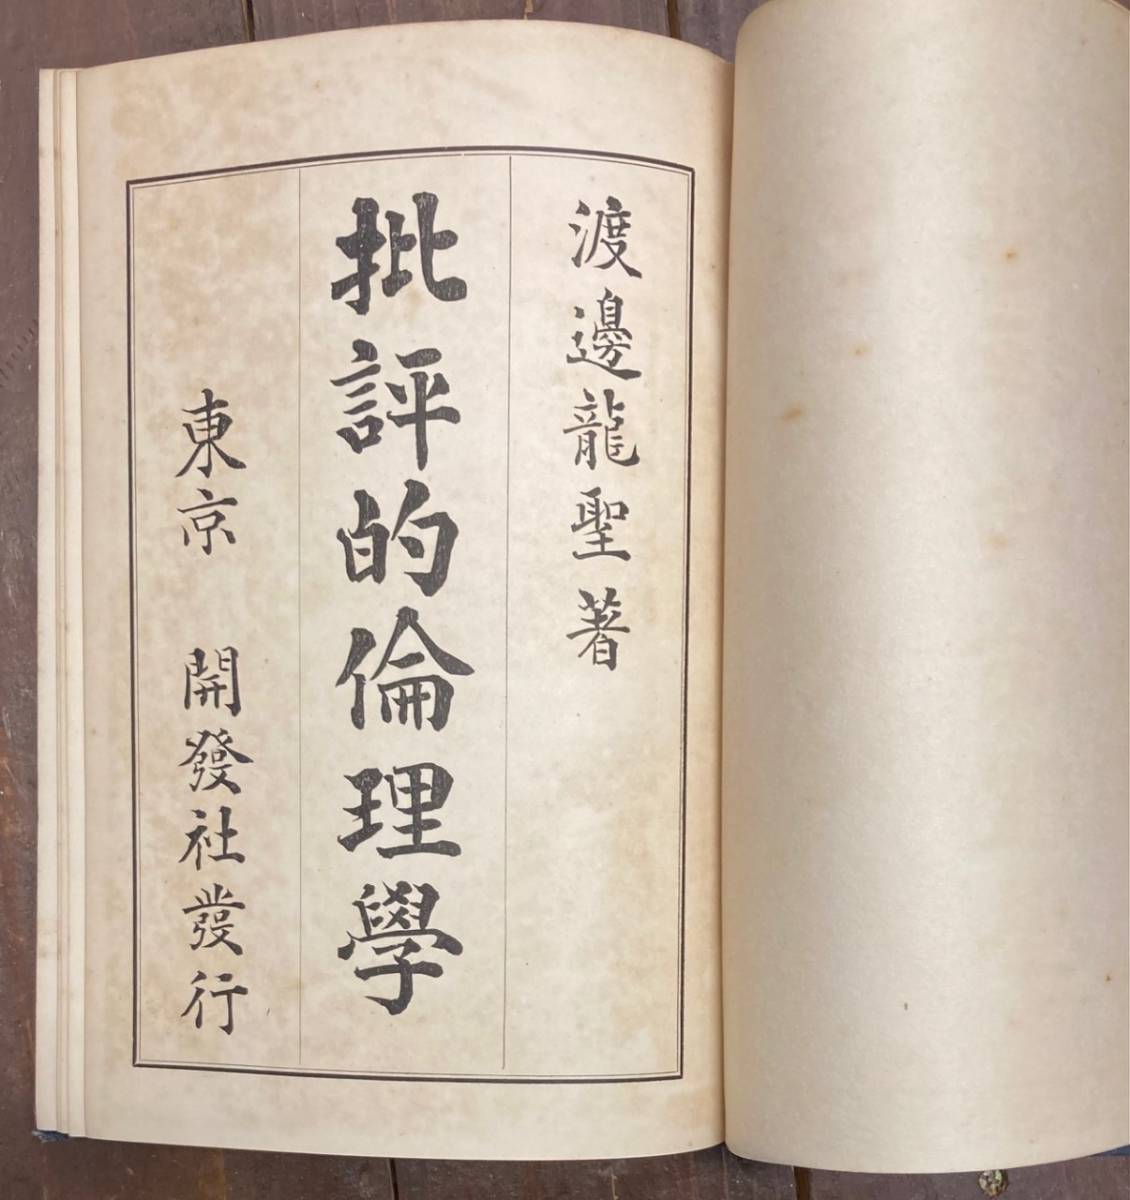 渡邊龍聖著
批評的倫理學
東京 開發社發行